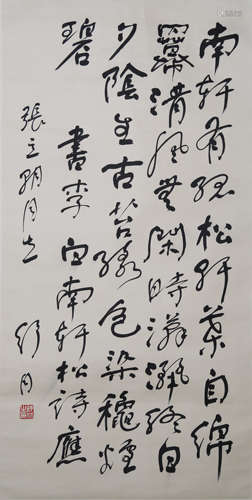 南軒有孤松柯葉自綿
冪清風無閑時瀟灑終日
夕陰生古苔綠色染穐煙
碧 書李白南軒松詩應
張立朋同志 舒同